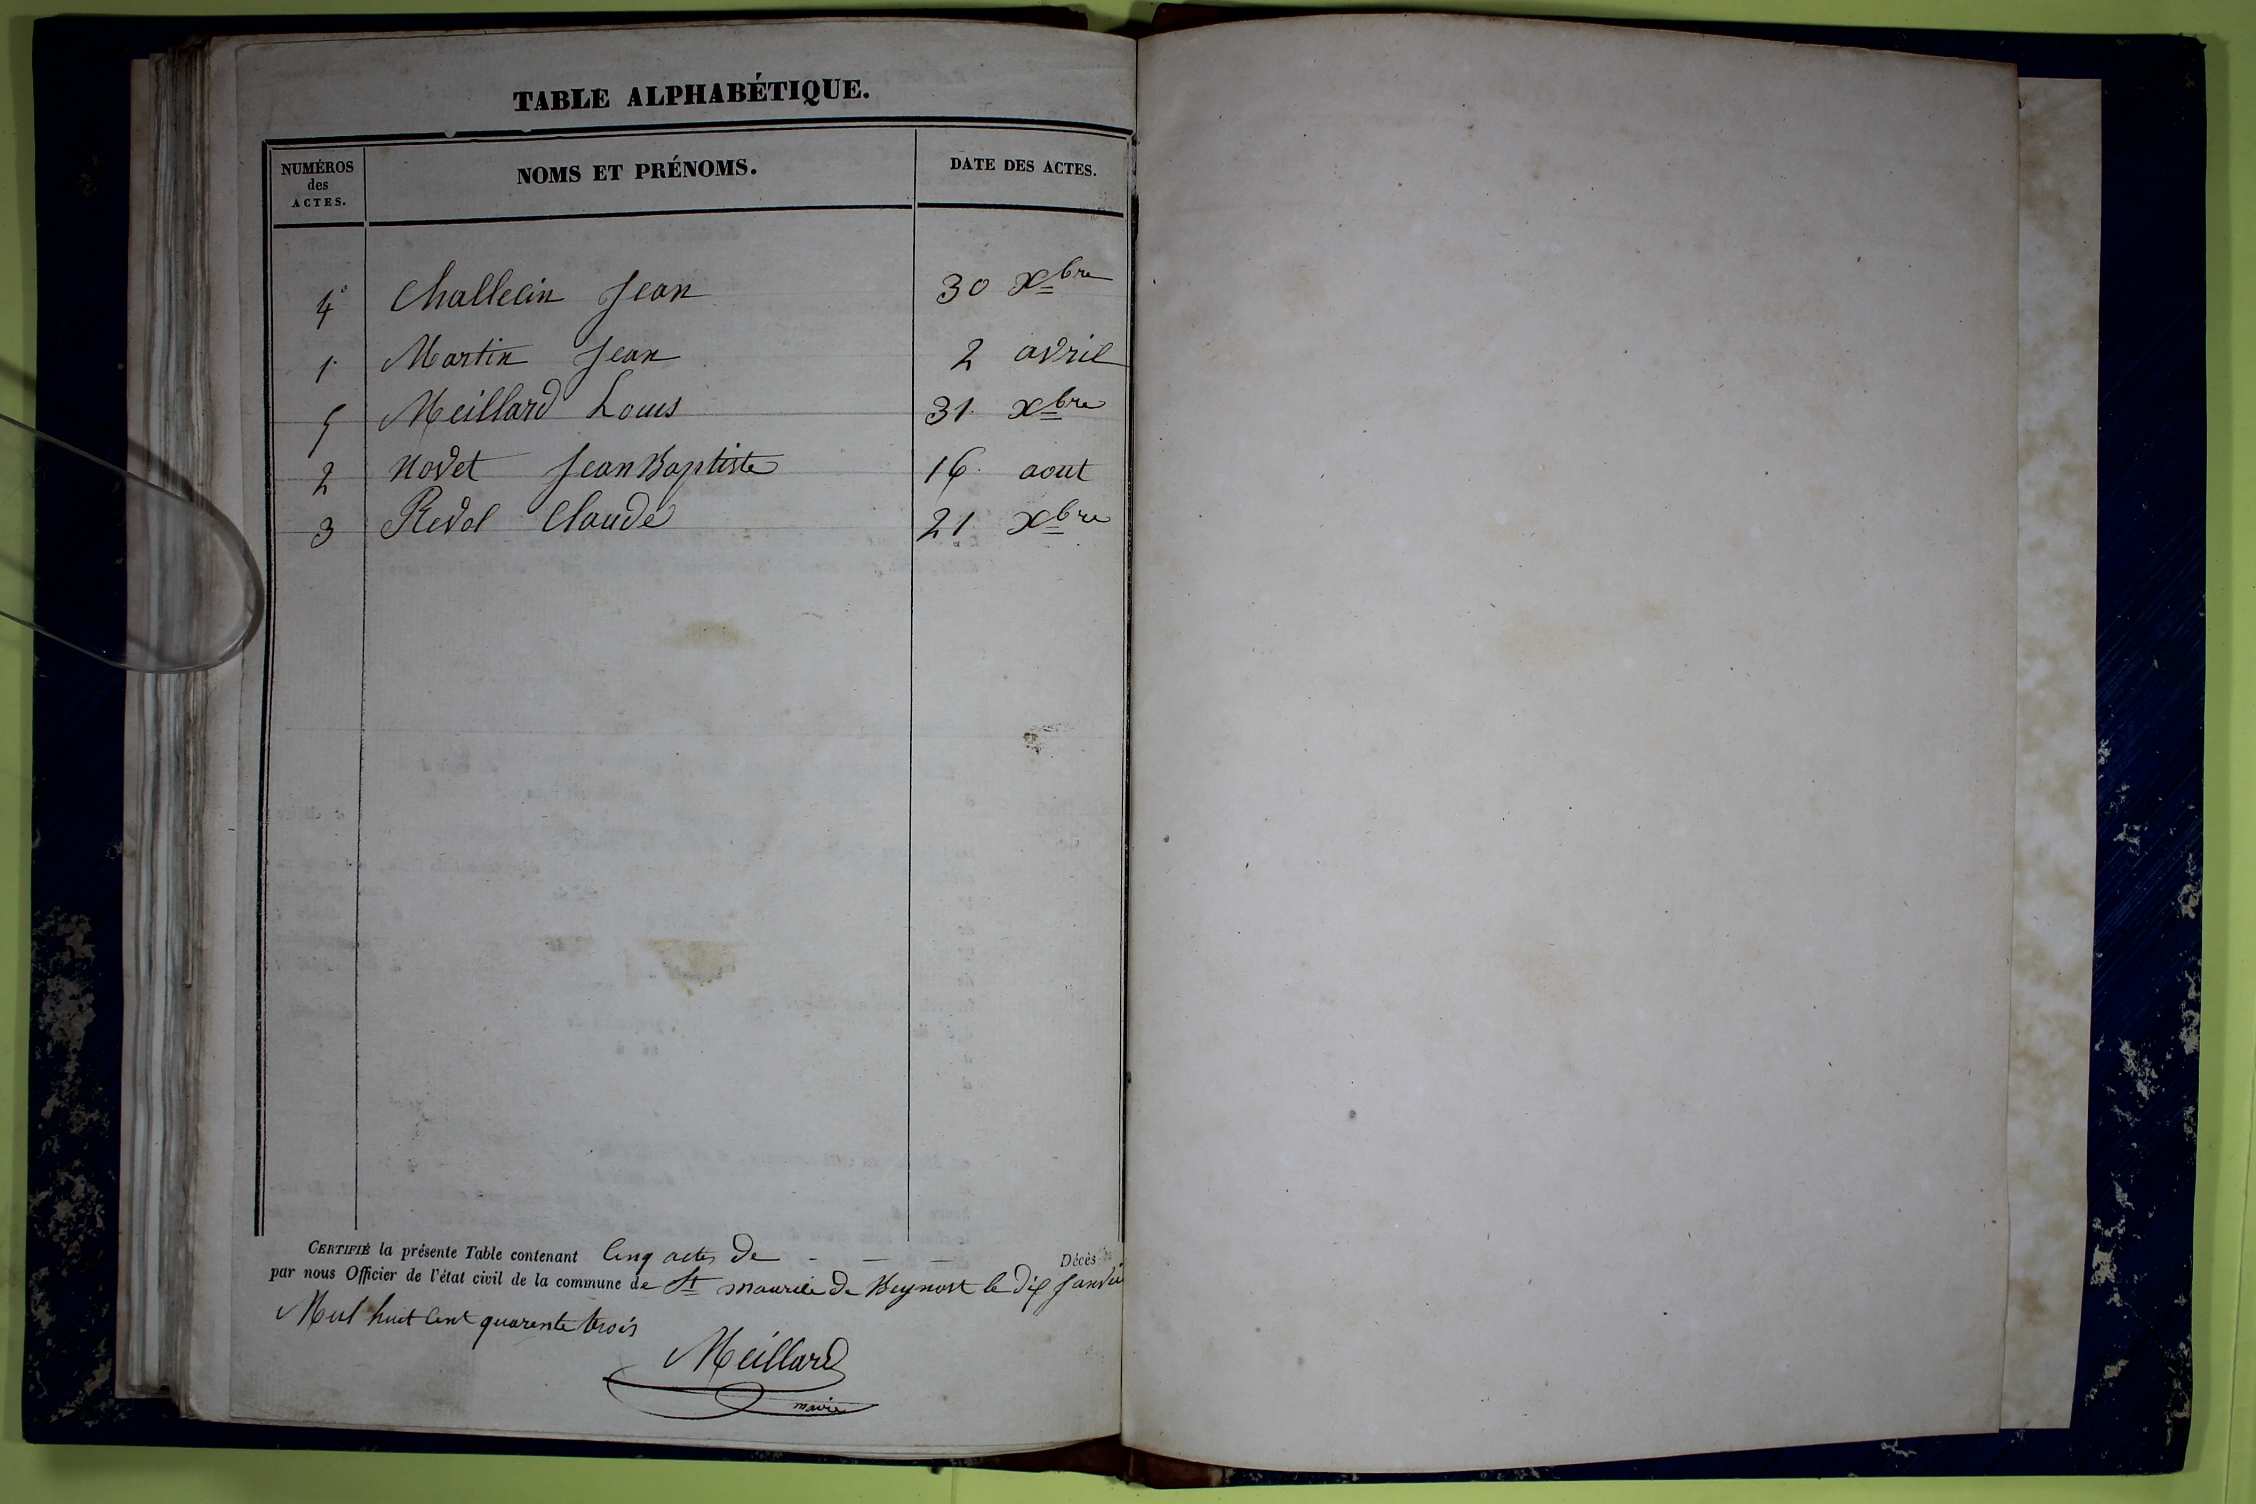 TABLE ALPHABÉTIQUE.
NUMÉROS des ACTES. NOMS ET PRÉNOMS. DATE DES ACTES.
4 Challecin Jean 30 Xbre
1 Martin Jean 2 avril
5 Meillard Louis 31 Xbre
2 Novet Jean Baptiste 16 aout
3 Revol Claude 21 Xbre
CERTIFIÉ la présente Table contenant Cinq actes de - - - Décès
par nous Officier de l'état civil de la commune de St maurice de Beynost le dix Janvier
Mil huit Cent quarente trois
Meillard
maire